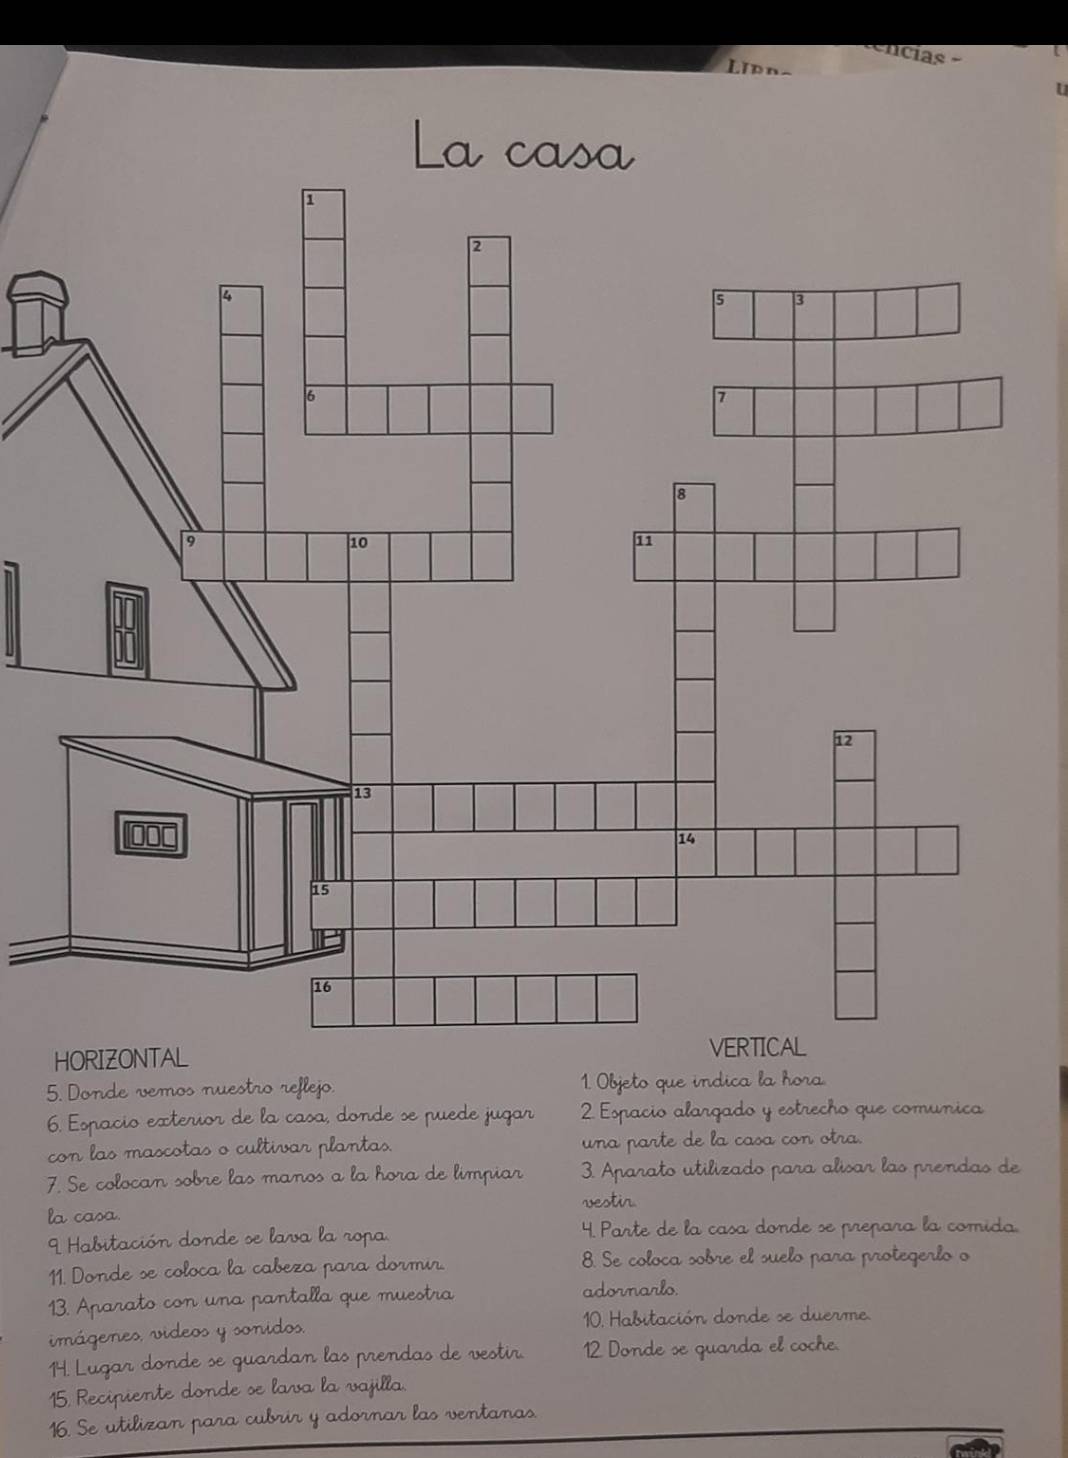 encias -
La casa
1
2
4
5
3
6
7
8
9
10
11
12
13
14
15
16
HORIZONTAL
5. Donde vemos nuestro reflejo.
6. Espacio exterior de la casa, donde se puede jugar
con las mascotas o cultivar plantas.
7. Se colocan sobre las manos a la hora de limpiar
la casa.
9. Habitación donde se lava la ropa.
11. Donde se coloca la cabeza para dormir.
13. Aparato con una pantalla que muestra
imágenes, videos y sonidos.
14. Lugar donde se guardan las prendas de vestir.
15. Recipiente donde se lava la vajilla.
16. Se utilizan para cubrir y adornar las ventanas.
VERTICAL
1. Objeto que indica la hora.
2. Espacio alargado y estrecho que comunica
una parte de la casa con otra.
3. Aparato utilizado para alisar las prendas de
vestir.
4. Parte de la casa donde se prepara la comida.
8. Se coloca sobre el suelo para protegerlo o
adornarlo.
10. Habitación donde se duerme.
12. Donde se guarda el coche.
twinkl